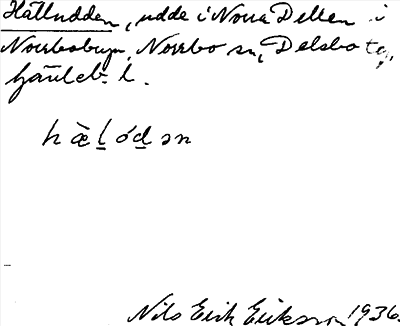 Hälludden, udde i Norra Dellen i
Norrbobyn, Norrbo sn, Delsbo tg,
Gävleb. l.
h æ̀ l ó d ə n
Nils Erik Eriksson 1936.